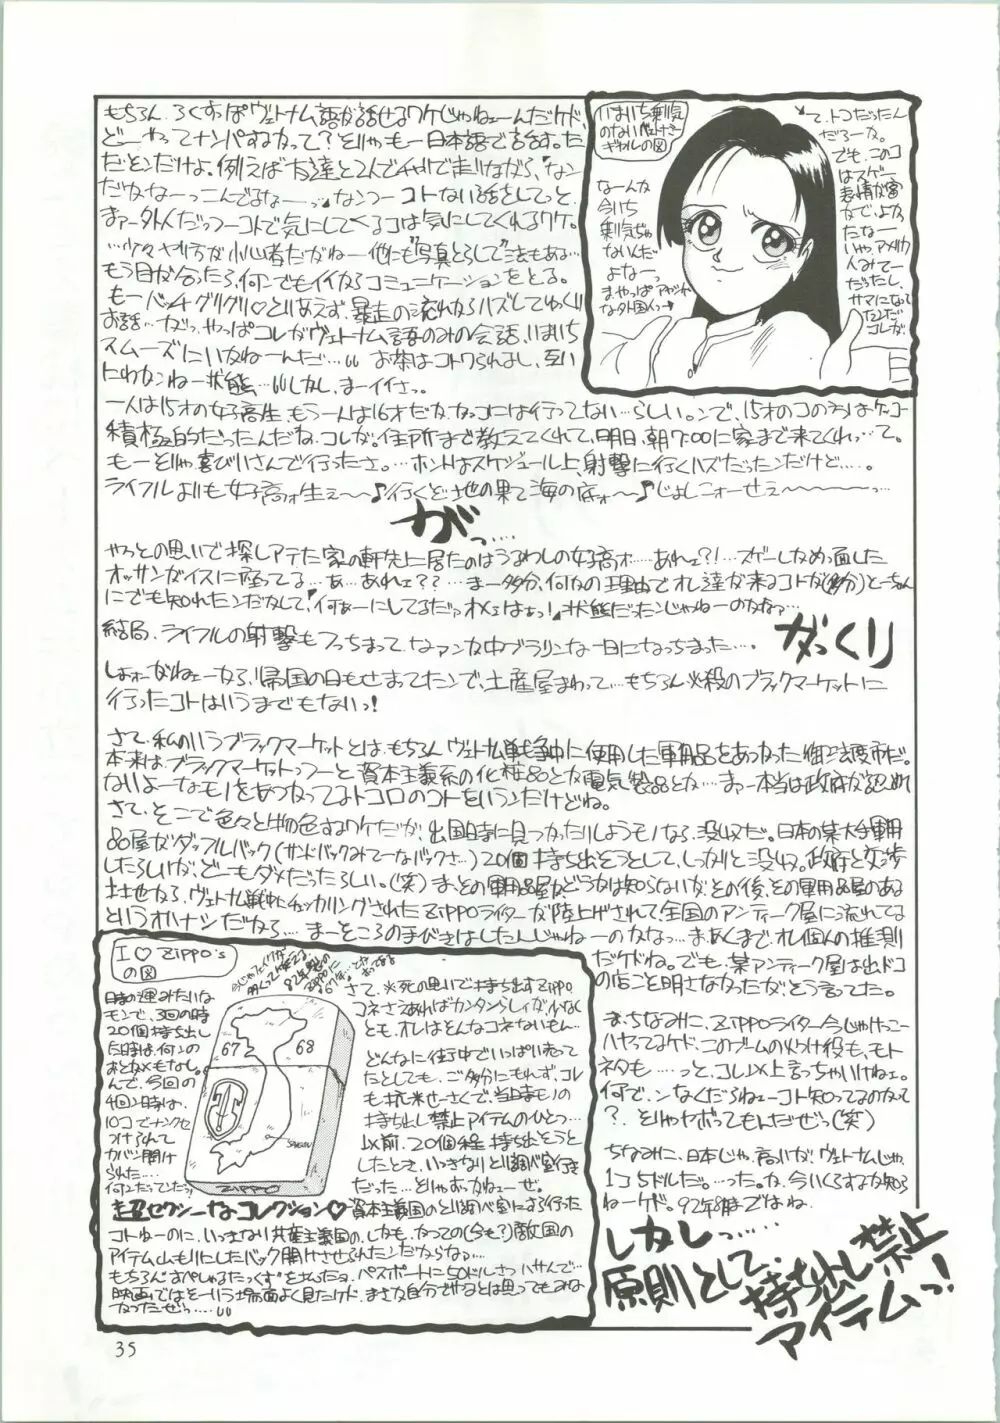 もちろん、ろくすっぽヴェトナム語が話せるワケじゃねェーんだケド、
どーやってナンパするかって？そりゃもー日本語で話す。た
だそんだけよ。例えば友達と2人でチャリで走りながら、「なん
だかなーっこんでるなー…」なんつーコトない話をしてっと、
まァー外人だっつーコトで気にしてくるコは気にしてくれるワケ。
もう目が合ったら、何でもイイからコミュニケーションをとる。
もーバッチグリグリ♡とりあえず、暴走の流れからハズしてゆっくり
お話…だがっ、やっぱコレがヴェトナム語のみの会話、いまいち
スムーズにいかねーんだ…いい お茶はコトワられるし、互い
にわかんねー状態…いいしかし、まーイイさっ。
一人は15才の女子高生、もう一人は16才だが、ガッコには行ってない…らしい。ンで、15才のコの方はケッコー
積極的だったんだね、コレが。住所まで教えてくれて、明日、朝7:00に家まで来てくれ…って。
もーそりゃ喜びいさんで行ったさ。…ホントはスケジュール上、射撃に行くハズだったンだけど…。
ライフルよりも女子高ォ生ェ〜〜♪行くど、地の果て海の底ォ〜♪じょしこォーせェ〜〜〜〜…
がっ…
やっとの思いで探しアテた家の軒先に居たのはうるわしの女子高ォ…あれェ？！…スゲーしかめっ面した
オッサンがイスに座ってる…あ…あれェ？？…まー多分、何かの理由でオレ達が来るコトが(多分)とーちゃん
にでも知れたンだかして、「何ぁーにしてるだァオメェはよっ！」状態だったンじゃねーのかなァ…
がっくり
結局、ライフルの射撃もフっちまって、なァンか中ブラリンな一日になっちまった…。
しょォーがねェーから、帰国の日もせまってたンで、土産屋まわって…もちろん必殺のブラックマーケットに
行ったコトはいうまでもないっ！
さて、私のいうブラックマーケットとは、もちろんヴェトナム戦争中に使用した軍用品をあつかった御法度市だ。
本来は、ブラックマーケットっつーと資本主義系の化粧品とか電気製品とか…まァー本当は政府が認めれ
ないよーなモノをあつかってるトコロのコトをいうンだけどね。
さて、そこで色々と物色するワケだが、出国時に見つかったりしようモノなら、没収だ。日本の某大手軍用
品屋がダッフルバック(サンドバックみてーなバックさ…)20個持ち出そうとして、しっかと没収。政府と交渉
したらしいが、どーもダメだったらしい。(笑)まァその軍用品屋かどうかは知らないが、その後、その軍用品屋のある
土地から、ヴェトナム戦中にチェッカリングされたZIPPOライターが陸上げされて、全国のアンティーク屋に流れてる
というオハナシだから…まーそころの手びきはしたんじゃねーのかなっ…まァあくまで、オレ個人の推測
だケドね。でも、某アンティーク屋は出ドコ
の店ごと明さなかったが、そう言ってた。
まァちなみに、ZIPPOライター今じゃけっこー
ハヤってるケド、このブームの火つけ役も、モト
ネタも……っと、コレ以上言っちゃいけねェ。
何で、ンなくだらねェーコト知ってるのかって
？、そりゃヤボってもんだぜっ(笑)
ちなみに、日本じゃ、高いが、ヴェトナムじゃ、
1コ5ドルだ。…った。が、今いくらするか知ら
ねーケド。92年8月ではね。
しかしっ……
原則として、
持ち出し禁止
アイテムっ！
いまいち刺気
のないヴェトナミー
ギャルの図
なーんか
今いち
刺気じゃ
ないんだ
よなーっ
…て、トコだったん
だろーな。
でも、このコ
はスゲー
表情が豊
かで、よか
たなー
いやァアメリカ
人みてー
だったし、
サマになって
たンだ
コレが。
I♡ZIPPO's
の図
時の運みたいな
モンで、3回の時
20個持ち出し
た時は、何ンの
おとがめもなし。
んで、今回の
4回ン時は、
10コでナンクセ
つけられて
カバン開け
られた…
何ンだってンだっ！
67 68
SAIGON
ZIPPO
超セクシーなコレクション♡
さて、※死の思いで持ち出すZIPPO
コネさえあればカンタンらしィが、少なく
とも、オレはそんなコネないもん…
どんなに街中でいっぱい売って
たとしても、ご多分にもれず、コレ
も抗米せーさくで、当時モノの
持ち出し禁止アイテムのひとつ…
以前、20個程持ち出そうと
したとき、いっきなりとり調べ室行き
だった…とりゃおっかねェーぜ。
資本主義国のとり調べ室にすら行った
コトねーのに、いっきなり共産主義国の、しかも、かつての(今も？)敵国の
アイテム山もりにしたバック開けさせられたンだからなァ…
もちろん"すぺしゃるたっくす"を含んだョ、パスポートに50ドルさつハサんで…
映画ではそーいう場面よく見たケド、まさか自分でやるとは思ってもみな
かったぜっ…いい
35